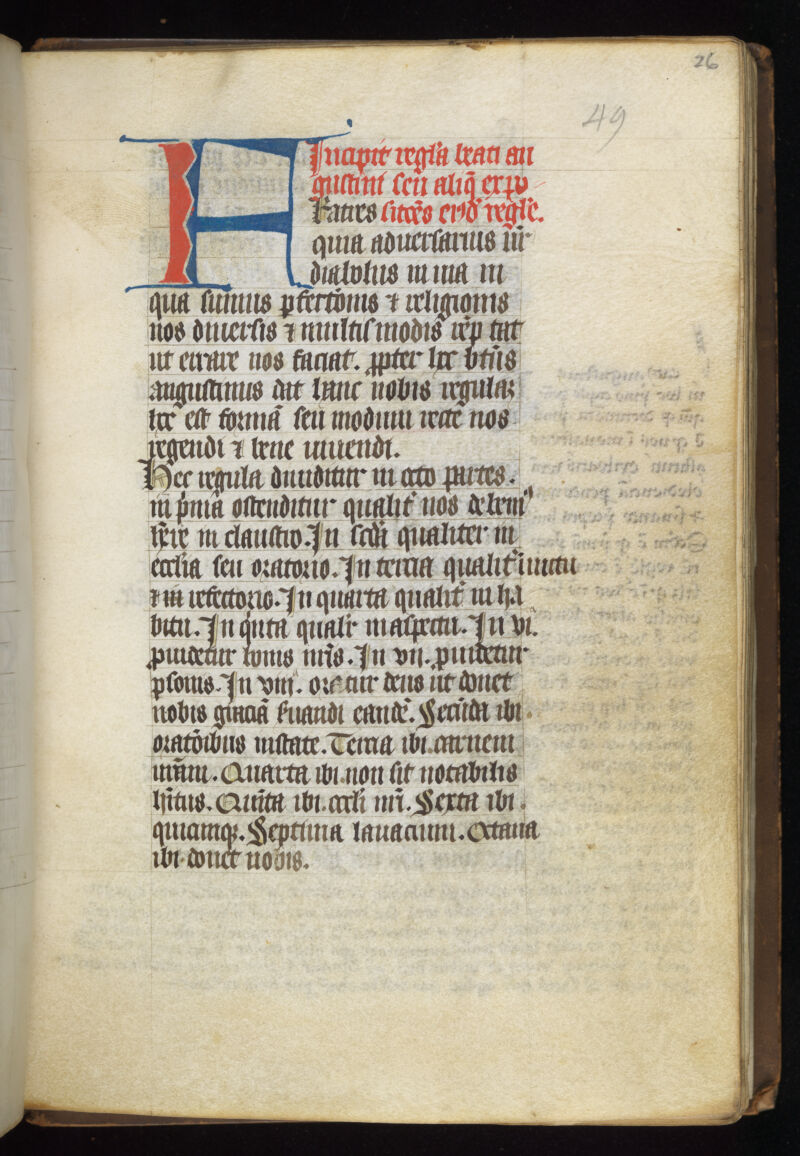 26
49
Incipit regl'a beati au
gustini seu aliq̄ expo
Fratres sitōēs eiusd' regl'e.
quia aduersarius nr̄
diabolus in uia in
qua sumus p̄fectōnis ⁊ religionis
nos diuersis ⁊ multis modis tēptat
ut errare nos faciat. ꝓpter hec bt̄us
augustinus dat hanc nobis regulaꝫ
hec est formā seu modum recte nos
regendi ⁊ bene uiuendi.
Hec regula diuiditur in octo partes.
in p̄ma ostenditur qualit̄ nos debem'
hr̄e in claustro. In scd̄a qualiter in
ecclīa seu oratorio. In tercia qualit̄ inuictu
⁊ in refectorio. In quarta qualit̄ in ha
bitu. In q̄nta qualr̄ in aspectu. In vi.
ꝓuidetur bonis nr̄is. In vii. ꝓuidetur
p̄sonis. In viii. oretur deus ut donet
nobis graciā s̄uandi eandē. Secūda ibi
oratōibus instate. Tercia ibi. carnem
ur̄am. Quarta ibi. non sit notabilis
hītus. Quīta ibi. oc̄li ur̄i. Sexta ibi.
quicumqꝫ. Septima lauacrum. Octaua
ibi. donet nobis.